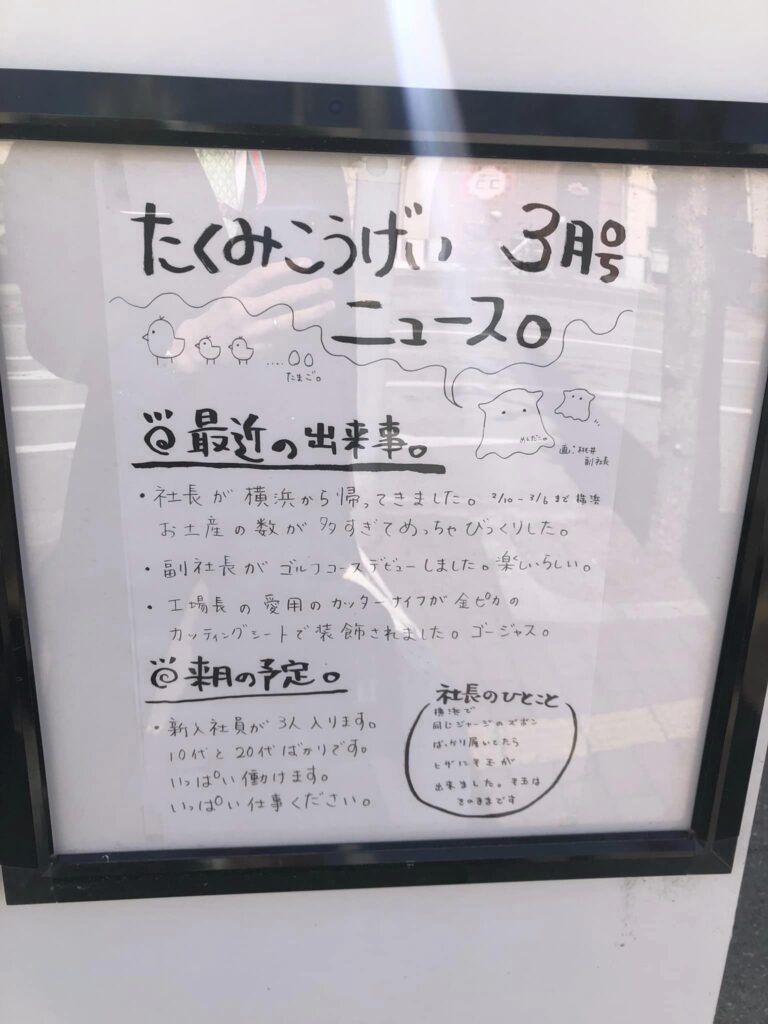 たくみこうげい 3月号
ニュース。
....00
たまご。
めんだこ。
画:桃井
副社長
最近の出来事。
・社長が横浜から帰ってきました。2/10-3/6まで横浜
お土産の数が多すぎてめっちゃびっくりした。
・副社長がゴルフコースデビューしました。楽しいらしい。
・工場長の愛用のカッターナイフが金ピカの
カッティングシートで装飾されました。ゴージャス。
来月の予定。
・新入社員が3人入ります。
10代と20代ばかりです。
いっぱい働けます。
いっぱい仕事ください。
社長のひとこと
横浜で
同じジャージのズボン
ばっかり履いてたら
ヒザに毛玉が
出来ました。毛玉は
そのままです